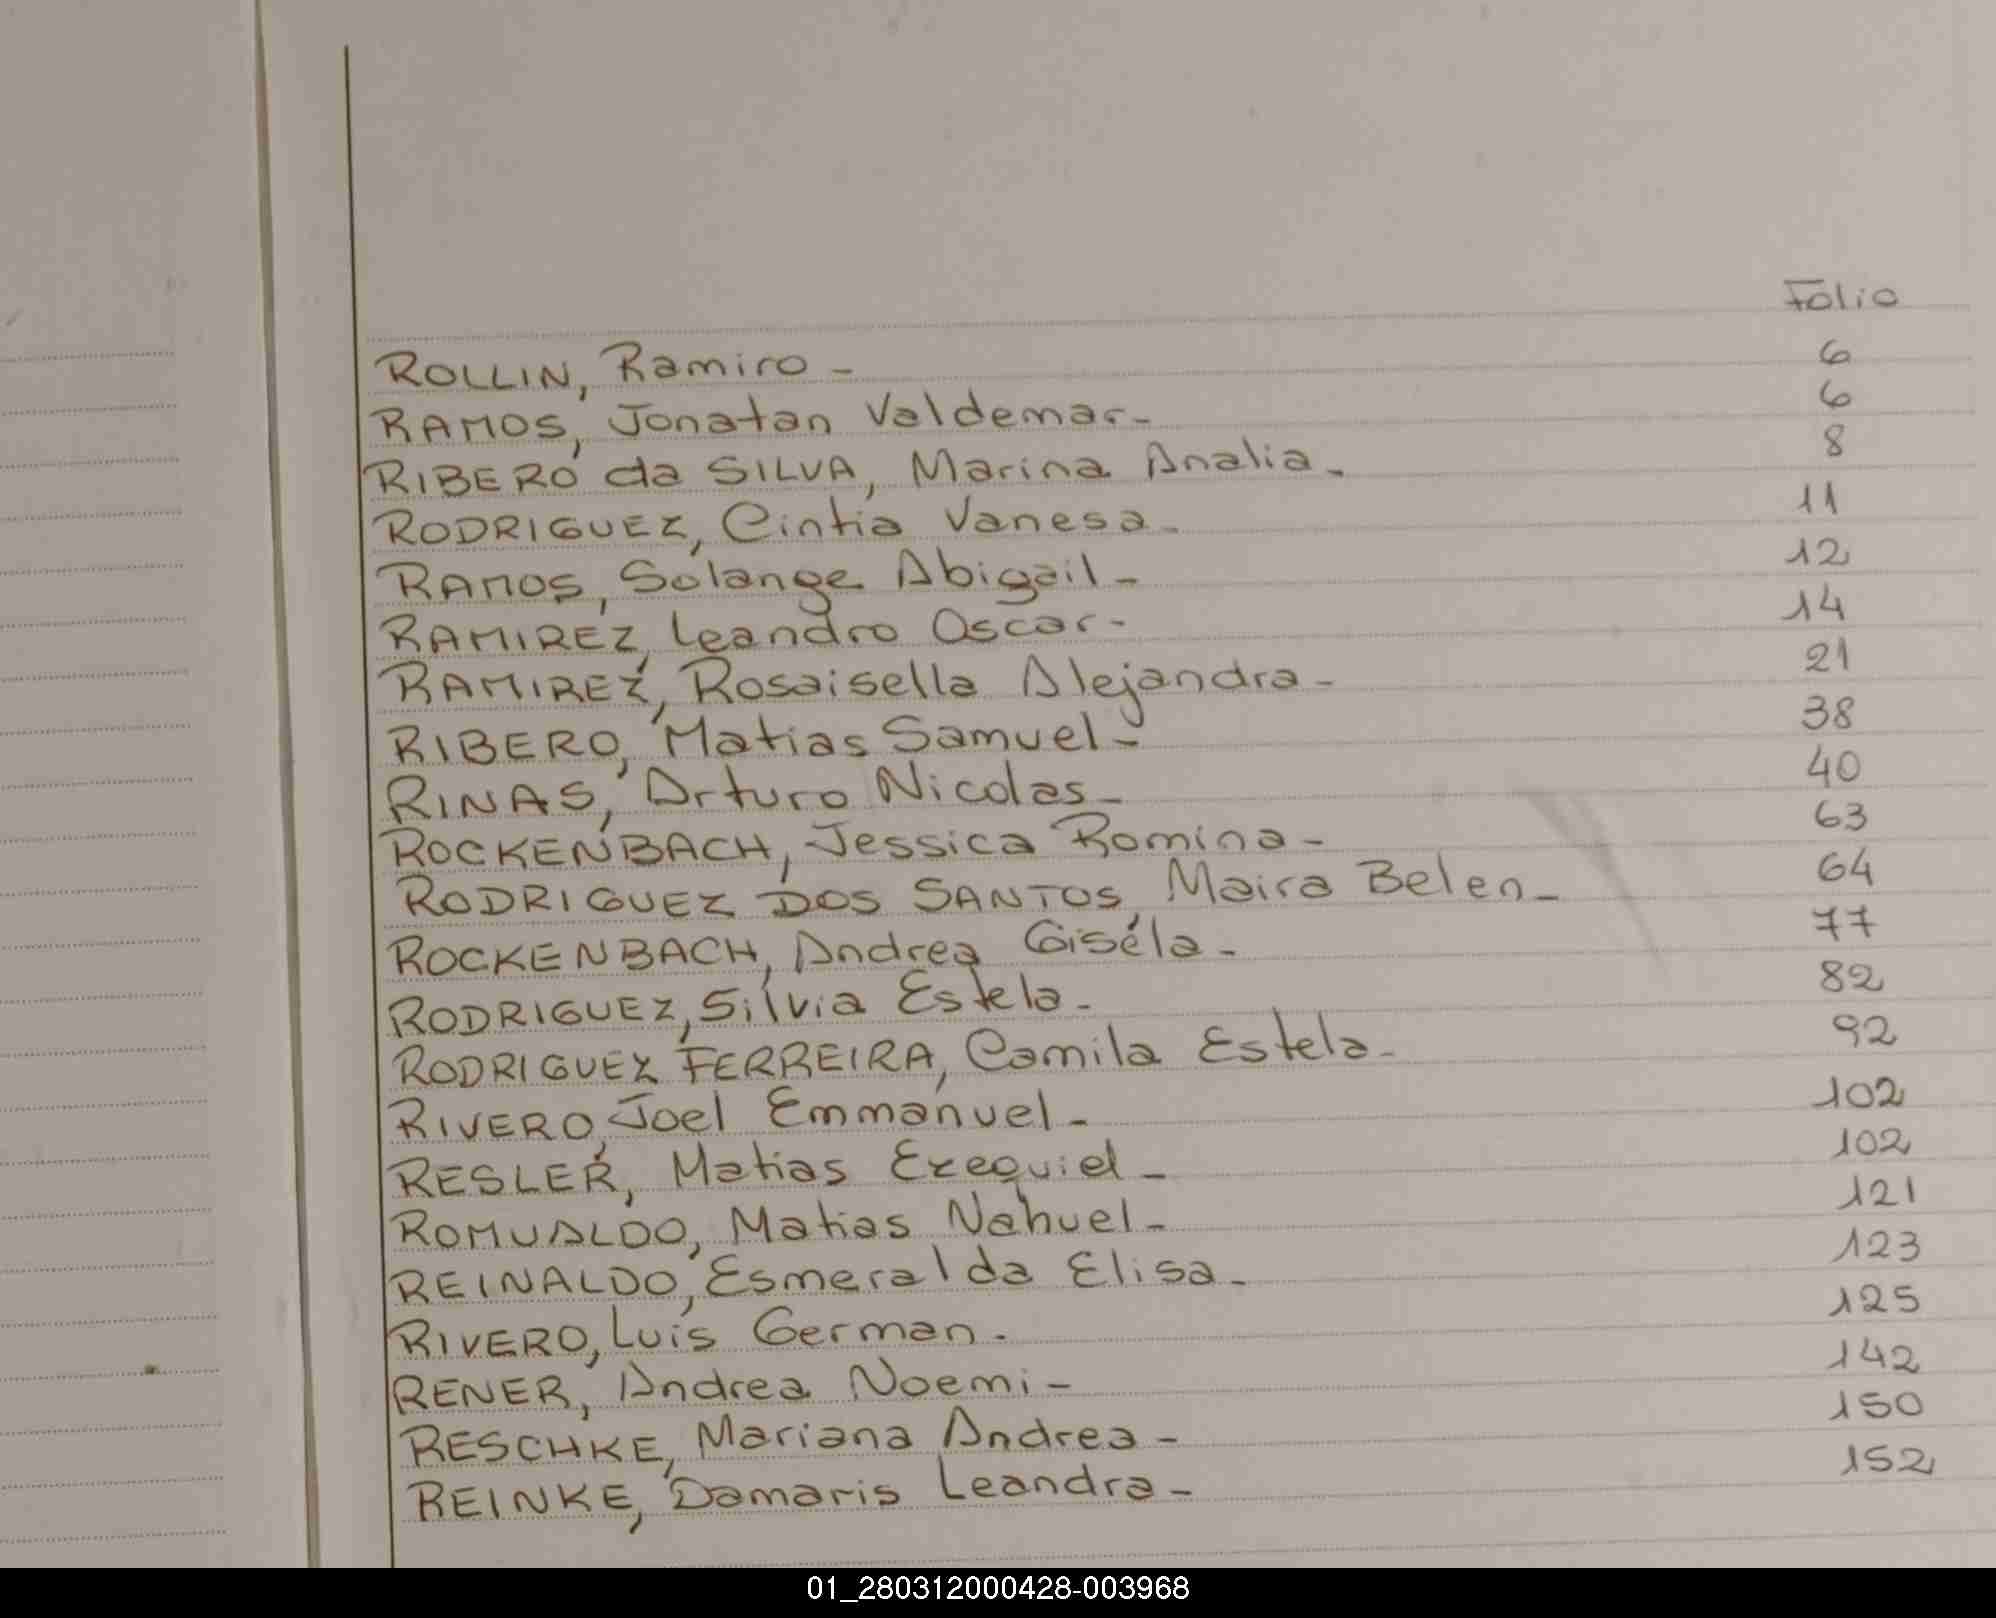 Folio
ROLLIN, Ramiro - 6
RAMOS, Jonatan Valdemar - 6
RIBERO da SILVA, Marina Analia - 8
RODRIGUEZ, Cintia Vanesa - 11
RAMOS, Solange Abigail - 12
RAMIREZ, Leandro Oscar - 14
RAMIREZ, Rosaisella Alejandra - 21
RIBERO, Matias Samuel - 38
RINAS, Arturo Nicolas - 40
ROCKENBACH, Jessica Romina - 63
RODRIGUEZ DOS SANTOS, Maira Belen - 64
ROCKENBACH, Andrea Giséla - 77
RODRIGUEZ, Silvia Estela - 82
RODRIGUEZ FERREIRA, Camila Estela - 92
RIVERO, Joel Emmanuel - 102
RESLER, Matias Ezequiel - 102
ROMUALDO, Matias Nahuel - 121
REINALDO, Esmeralda Elisa - 123
RIVERO, Luis German - 125
RENER, Andrea Noemi - 142
RESCHKE, Mariana Andrea - 150
REINKE, Damaris Leandra - 152
01_280312000428-003968